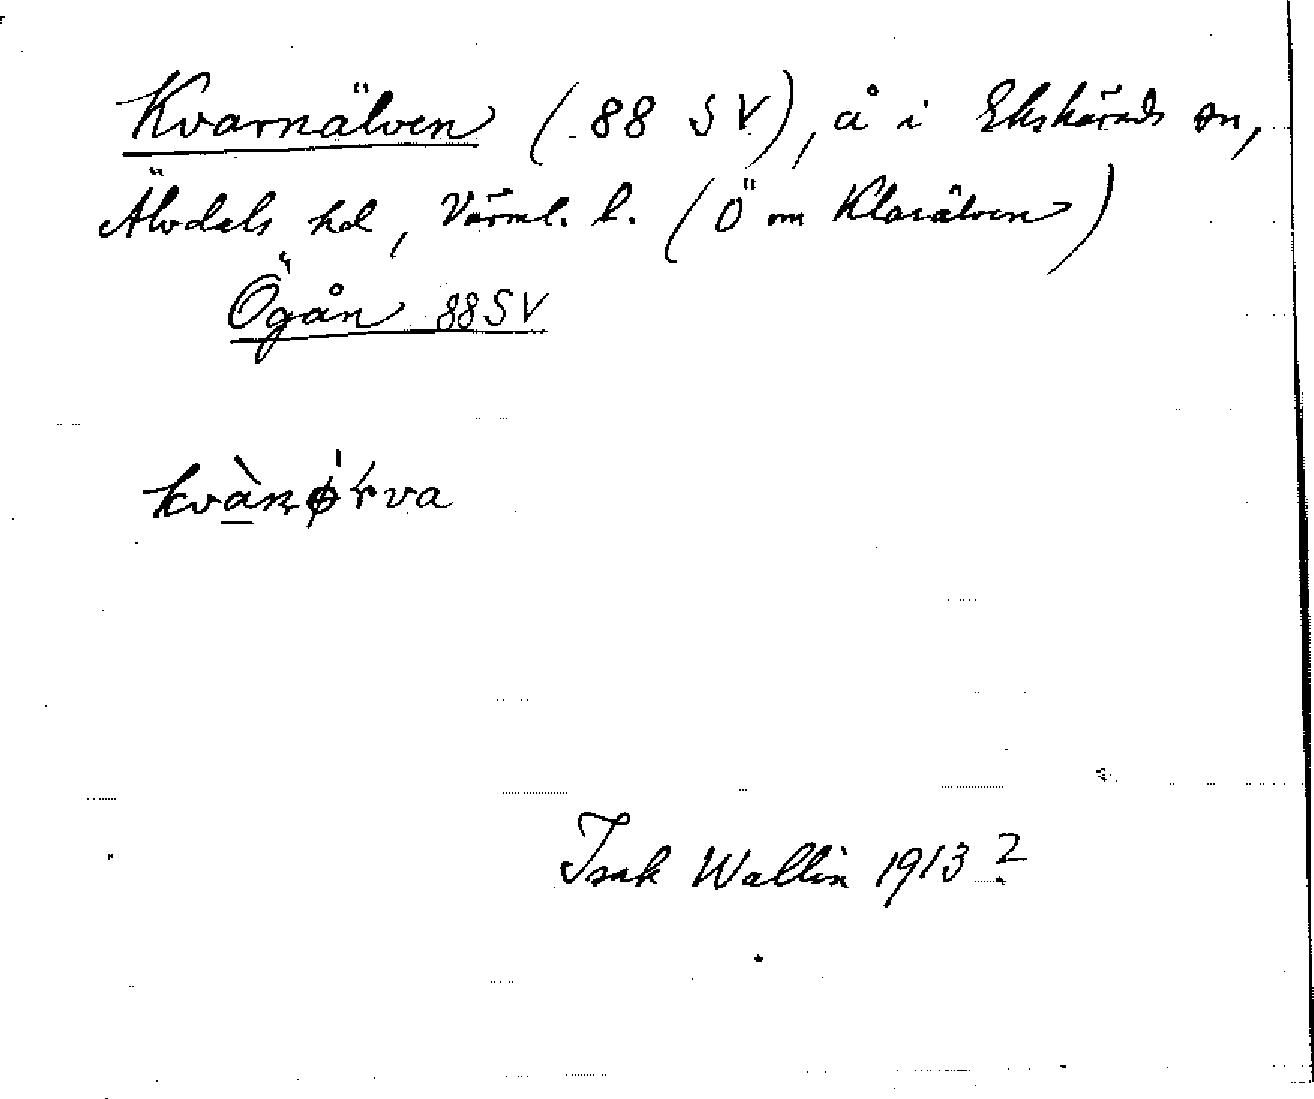 Kvarnälven (88 SV), å i Ekshärads sn,
Älvdals hd, Värml. l. (Ö om Klarälven)
Ögån 88SV
kvànø̍rva
Isak Wallin 1913 ?